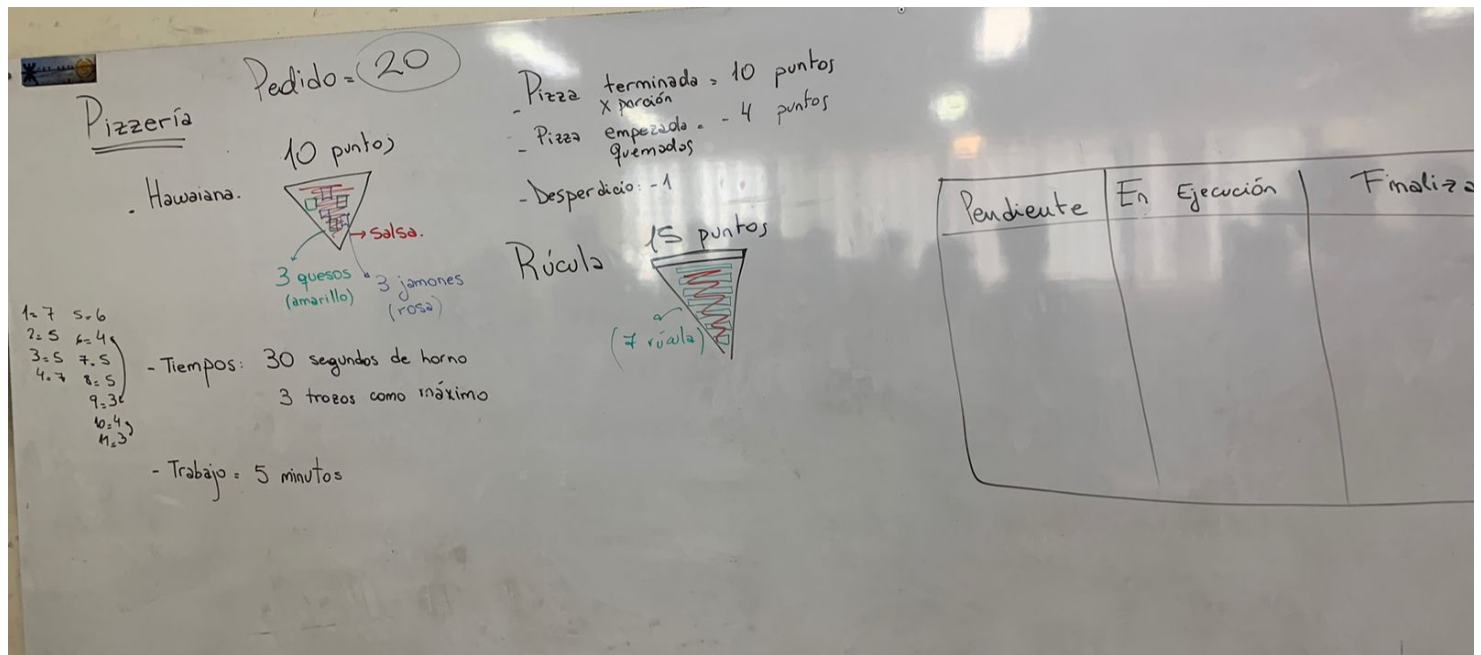 Pizzería
Pedido = 20
10 puntos
- Hawaiana.
→ salsa.
3 quesos
(amarillo)
3 jamones
(rosa)
1=7 5=6
2=5 6=4
3=5 7=5
4=7 8=5
9=3
10=4
11=3
- Tiempos: 30 segundos de horno
3 trozos como máximo
- Trabajo = 5 minutos
- Pizza terminada = 10 puntos
x porción
- Pizza empezada = -4 puntos
quemados
- Desperdicio: -1
Rúcula
15 puntos
(7 rúcula)
Pendiente
En Ejecución
Finaliza